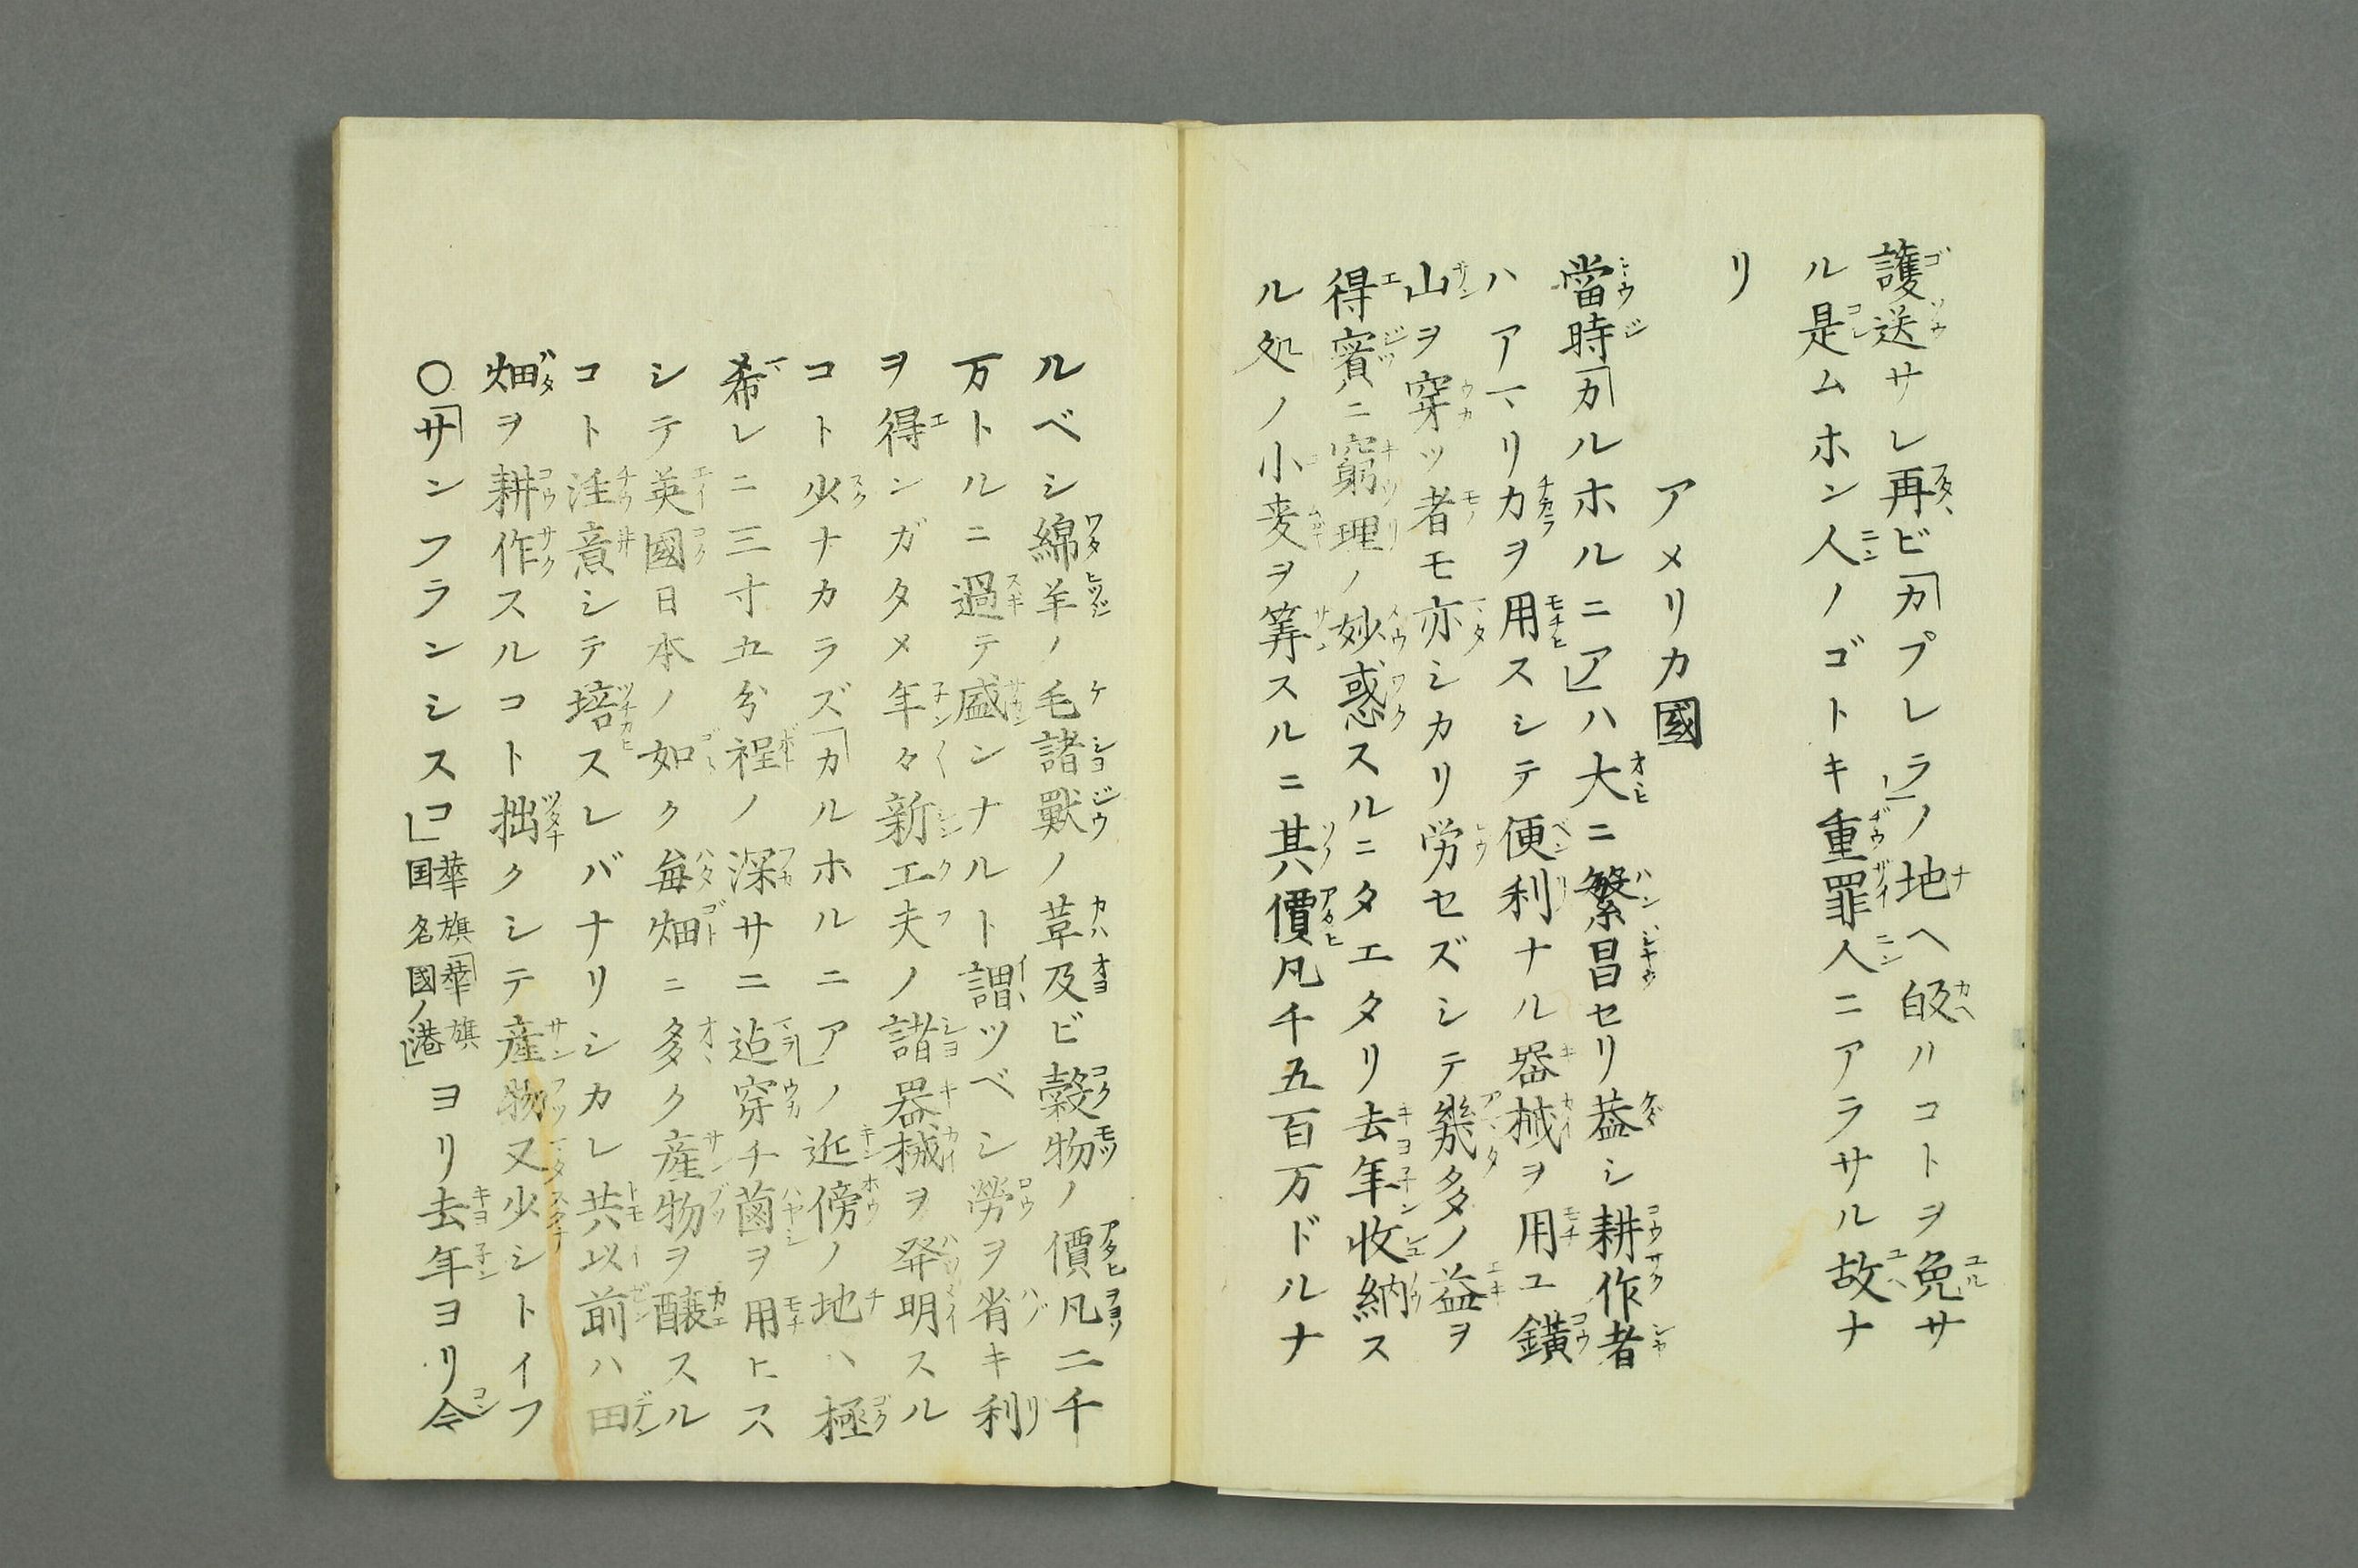 護送サレ再ビ「カプレラ」ノ地ヘ皈ハコトヲ免サ
ル是ムホン人ノゴトキ重罪人ニアラサル故ナ
リ
アメリカ國
當時「カルホルニア」ハ大ニ繁昌セリ葢シ耕作者
ハアマリカヲ用スシテ便利ナル器械ヲ用ユ鑛
山ヲ穿ツ者モ亦シカリ労セズシテ幾多ノ益ヲ
得實ニ窮理ノ妙惑スルニタエタリ去年收納ス
ル処ノ小麦ヲ筭スルニ其價凡千五百万ドルナ
ルベシ綿羊ノ毛諸獸ノ草及ビ穀物ノ價凡二千
万トルニ過テ盛ンナルト謂ツベシ勞ヲ省キ利
ヲ得ンガタメ年々新工夫ノ諸器械ヲ発明スル
コト少ナカラズ「カルホルニア」ノ近傍ノ地ハ極
希レニ三寸五分程ノ深サニ迠穿チ菌ヲ用ヒス
シテ英國日本ノ如ク毎畑ニ多ク産物ヲ釀スル
コト注意シテ培スレバナリシカレ共以前ハ田
畑ヲ耕作スルコト拙クシテ産物又少シトイフ
○「サンフランシスコ」華旗国名「華旗國ノ港」ヨリ去年ヨリ今